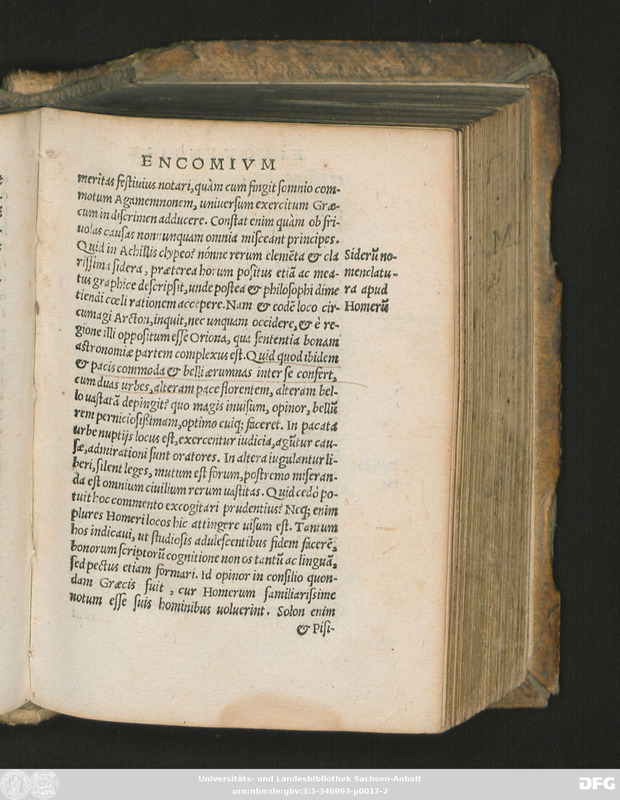 ENCOMIVM
meritas festiuius notari, quàm cum fingit somnio com-
motum Agamemnonem, uniuersum exercitum Græ-
cum in discrimen adducere. Constat enim quàm ob fri-
uolas causas nonnunquam omnia misceant principes.
Quid in Achillis clypeo? nónne rerum elemēta & cla
rissima sidera, præterea horum positus etiā ac mea-
tus graphice descripsit, unde postea & philosophi dime
tiendi cœli rationem accepere. Nam & eodē loco cir-
cumagi Arcton, inquit, nec unquam occidere, & è re-
gione illi oppositum esse Oriona, qua sententia bonam
astronomiæ partem complexus est. Quid quod ibidem
& pacis commoda & belli ærumnas inter se confert,
cum duas urbes, alteram pace florentem, alteram bel-
lo uastatā depingit? quo magis inuisum, opinor, bellū
rem perniciosissimam, optimo cuiq; faceret. In pacata
urbe nuptijs locus est, exercentur iudicia, agūtur cau-
sæ, admirationi sunt oratores. In altera iugulantur li-
beri, silent leges, mutum est forum, postremo miseran-
da est omnium ciuilium rerum uastitas. Quid cedò po-
tuit hoc commento excogitari prudentius? Neq; enim
plures Homeri locos hic attingere uisum est. Tantum
hos indicaui, ut studiosis adulescentibus fidem facerē,
bonorum scriptorū cognitione non os tantū ac linguā,
sed pectus etiam formari. Id opinor in consilio quon-
dam Græcis fuit, cur Homerum familiarissime
notum esse suis hominibus uoluerint. Solon enim
& Pisi-
Siderū no-
menclatu-
ra apud
Homerū
Universitäts- und Landesbibliothek Sachsen-Anhalt
urn:nbn:de:gbv:3:1-346993-p0017-2
DFG